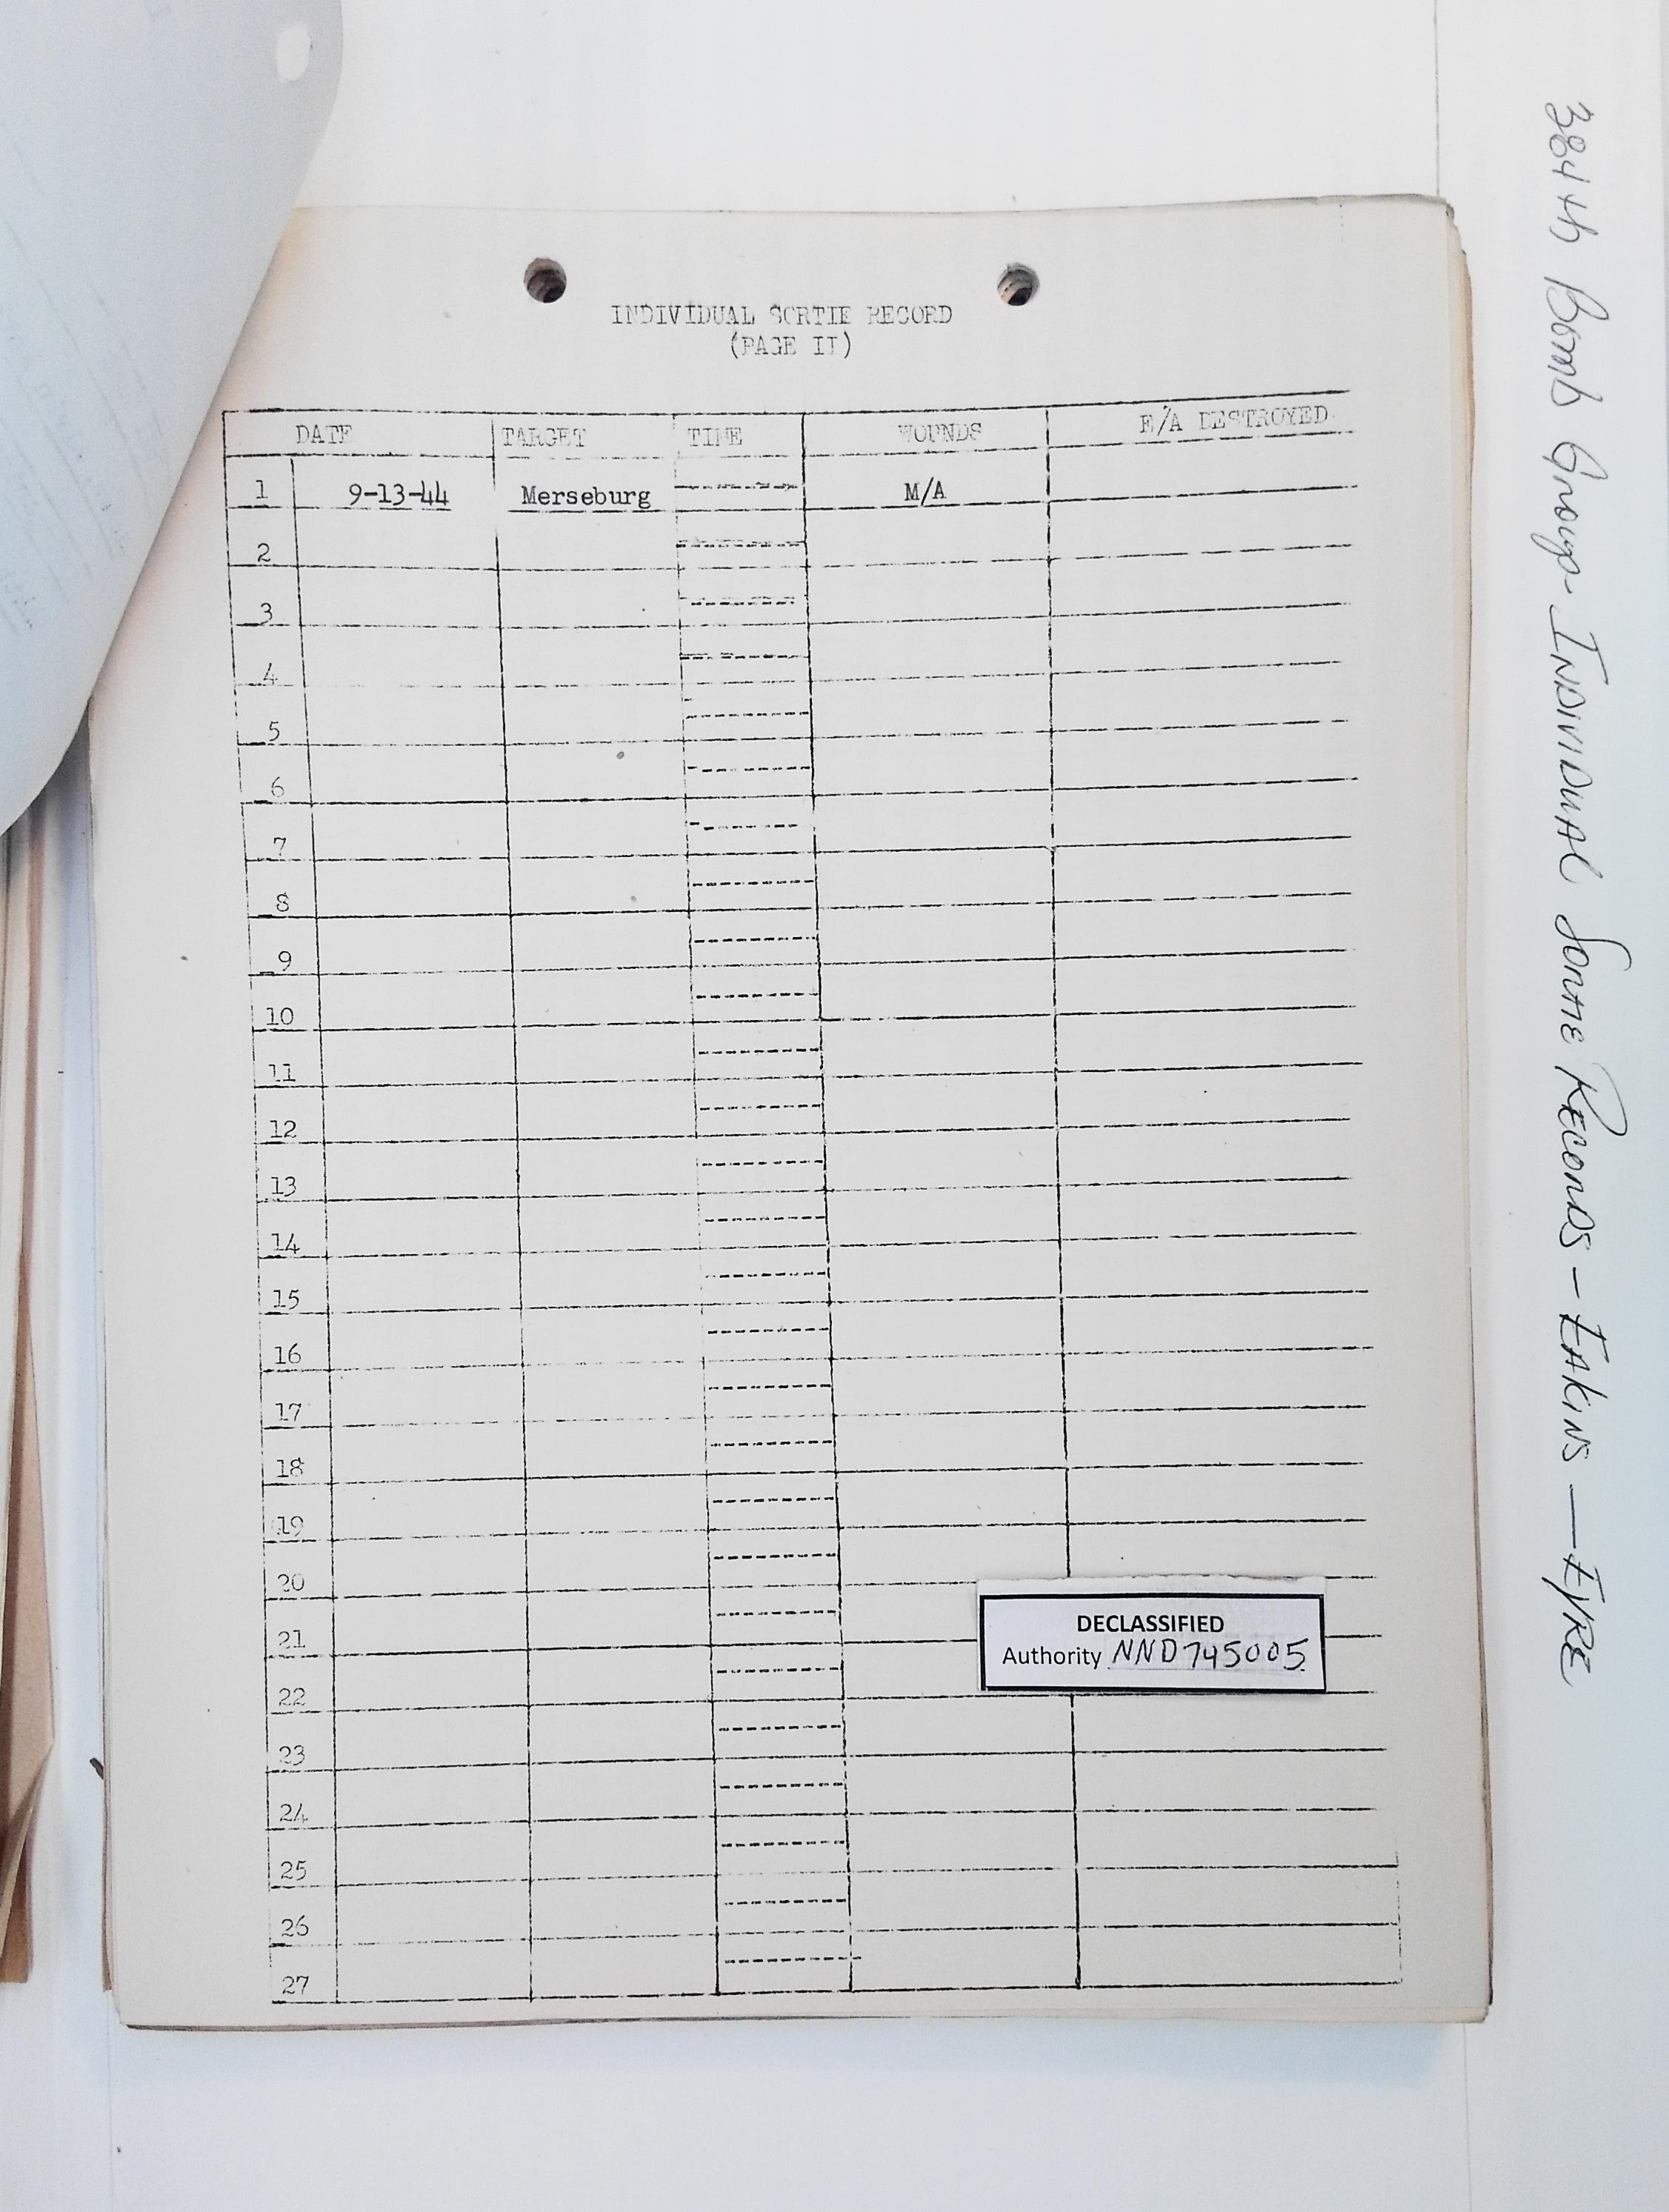 INDIVIDUAL SORTIE RECORD
(PAGE II)
DATE TARGET TIME WOUNDS E/A DESTROYED
1 9-13-44 Merseburg M/A
2
3
4
5
6
7
8
9
10
11
12
13
14
15
16
17
18
19
20
21
22
23
24
25
26
27
DECLASSIFIED
Authority NND 745005
384th Bomb Group - INDIVIDUAL SORTIE RECORDS - EAKINS - EYRE